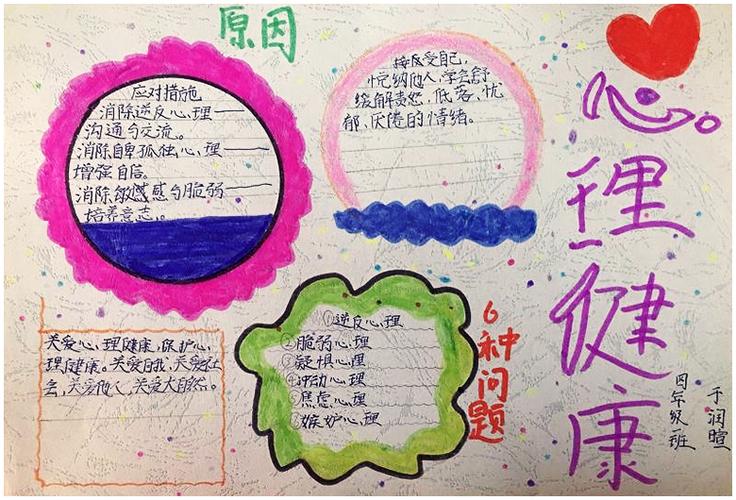 原因
应对措施
消除逆反心理——
沟通与交流。
消除自卑孤独心理——
增强自信。
消除敏感与脆弱——
培养意志。
接受自己,
悦纳他人,学会舒
缓解责怨,低落、忧
郁、厌倦的情绪。
心理健康
四年级一班
于润暄
关爱心理健康,保护心
理健康。关爱自我,关爱社
会,关爱他人,关爱大自然。
①逆反心理
②脆弱心理
③疑惧心理
④冲动心理
⑤焦虑心理
⑥嫉妒心理
6种问题